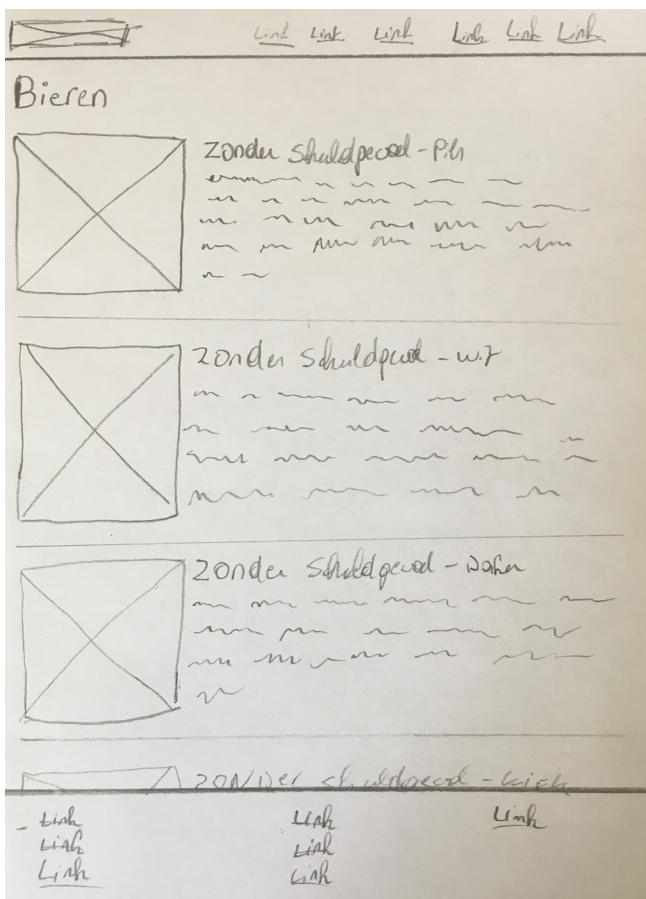 Link Link Link Link Link Link
Bieren
Zonder Schuldgevoel - Pils
Zonder Schuldgevoel - wit
Zonder Schuldgevoel -
Zonder Schuldgevoel -
Link Link Link
Link Link
Link Link